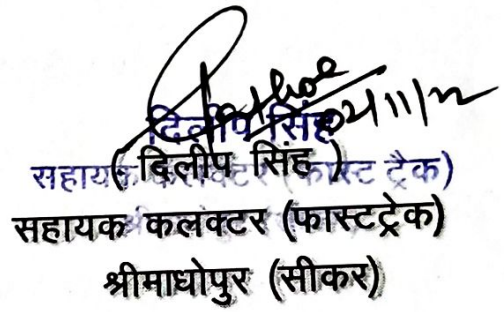 02/11/22
दिलीप सिंह
सहायक कलक्टर (फास्ट ट्रैक)
( दिलीप सिंह )
सहायक कलक्टर (फास्टट्रेक)
श्रीमाधोपुर (सीकर)